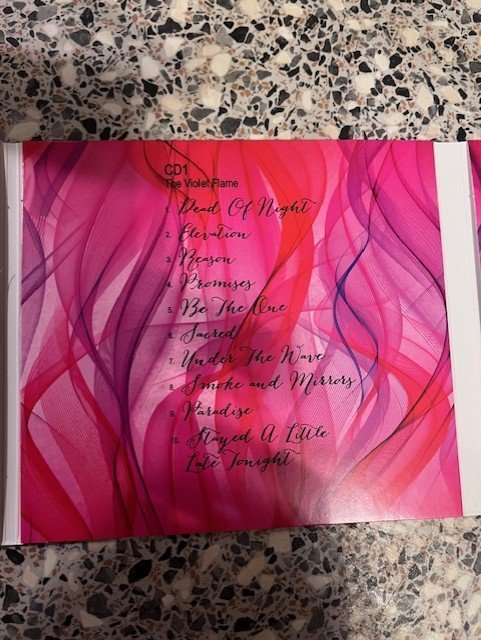 CD1
The Violet Flame
1. Dead Of Night
2. Elevation
3. Reason
4. Promises
5. Be The One
6. Sacred
7. Under The Wave
8. Smoke and Mirrors
9. Paradise
10. Stayed A Little
Late Tonight